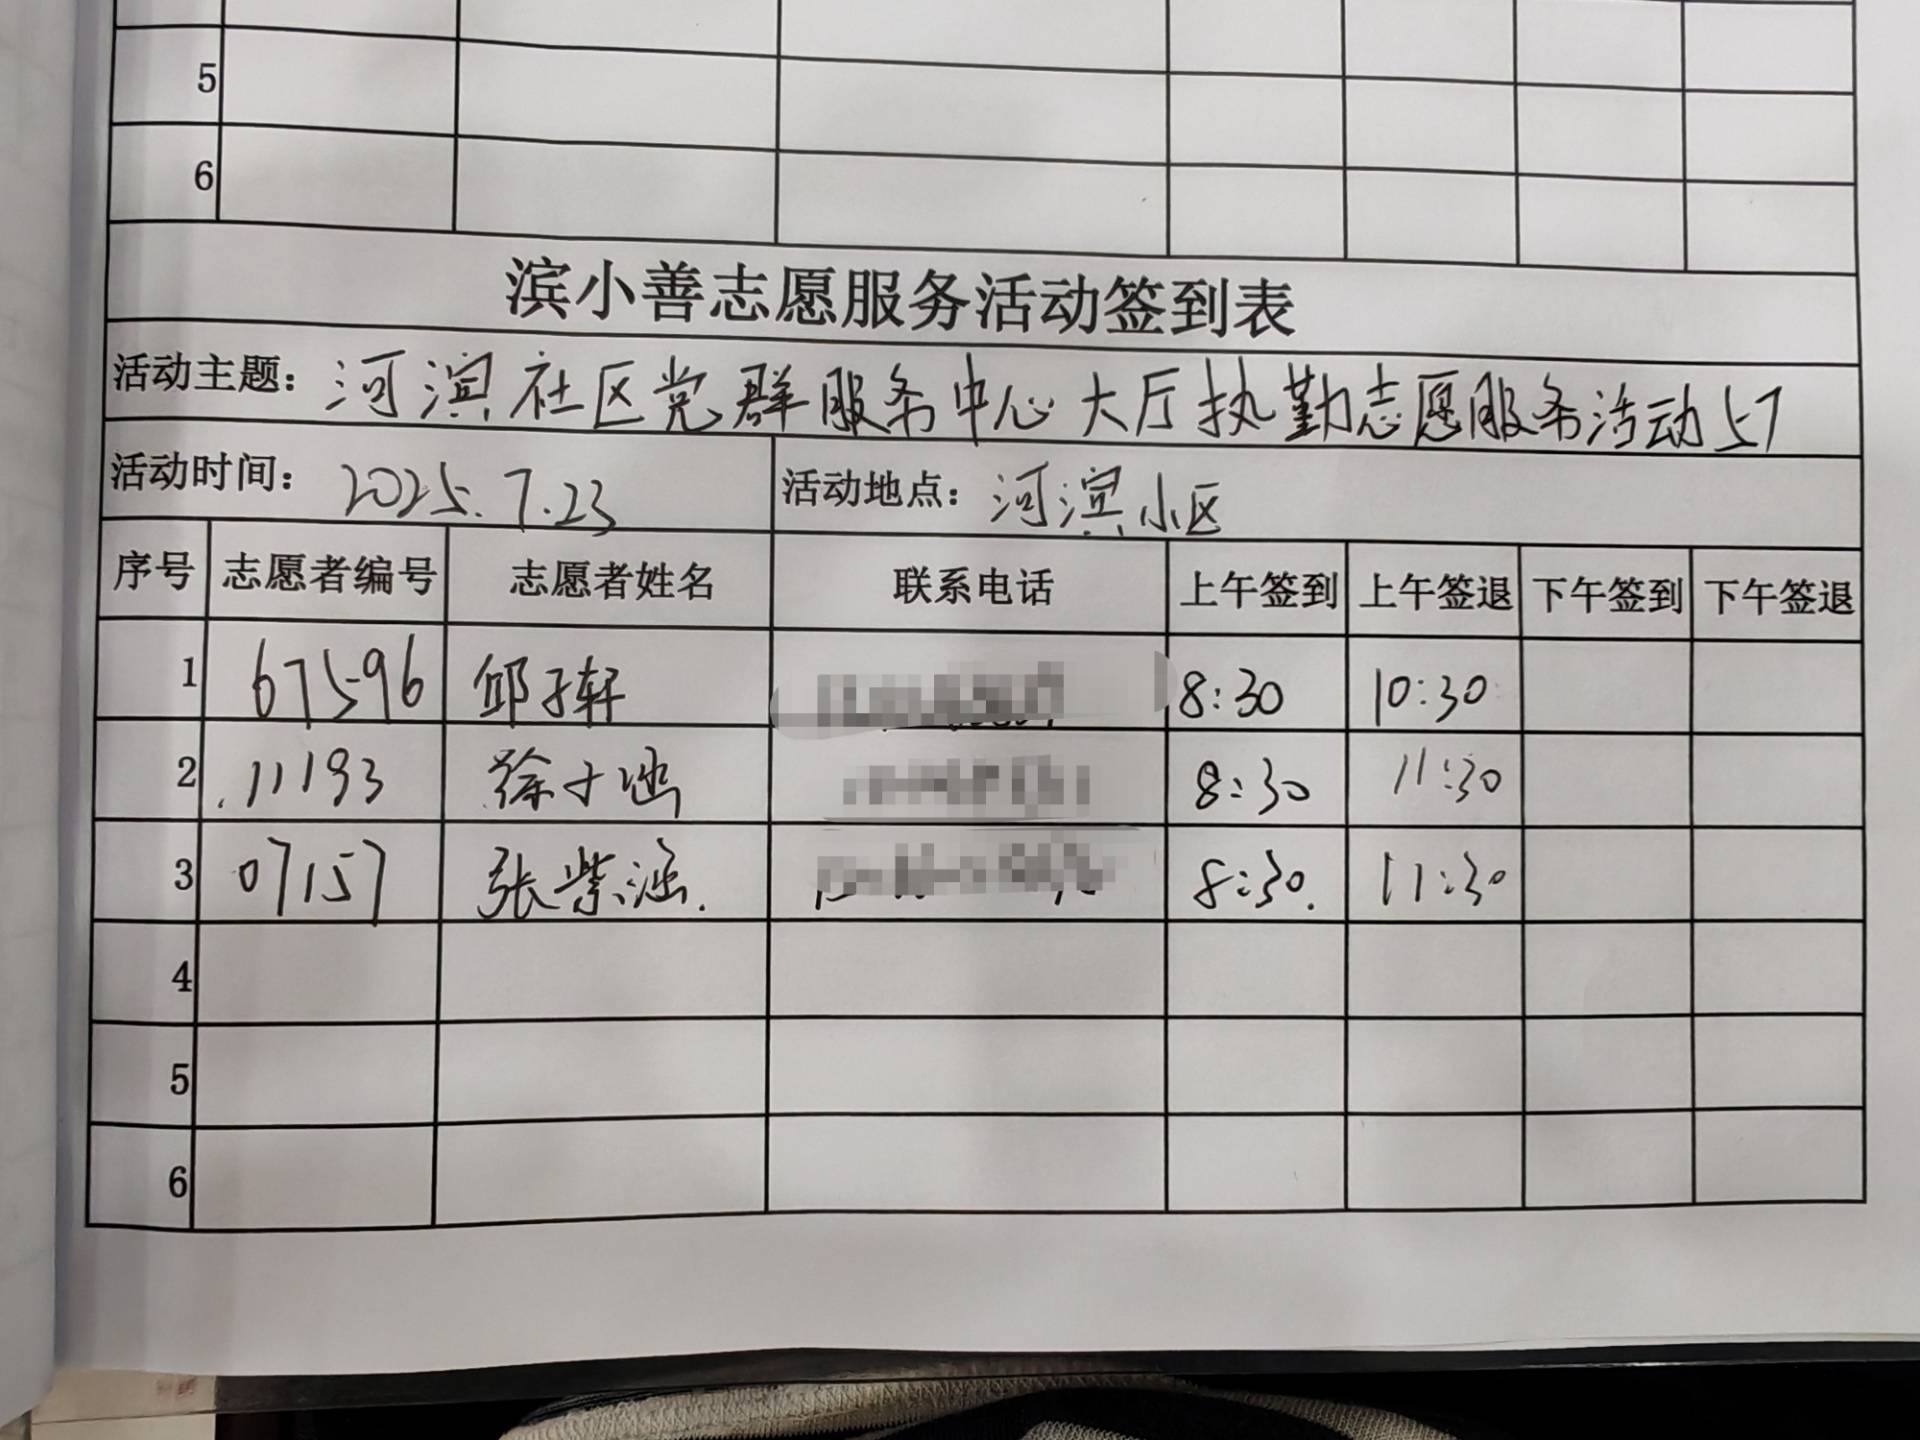 5
6
滨小善志愿服务活动签到表
活动主题：河滨社区党群服务中心大厅执勤志愿服务活动57
活动时间：2025.7.23 活动地点：河滨小区
序号 志愿者编号 志愿者姓名 联系电话 上午签到 上午签退 下午签到 下午签退
1 67596 邱子轩 8:30 10:30
2 11193 徐子涵 8:30 11:30
3 07157 张紫涵. 8:30. 11:30
4
5
6